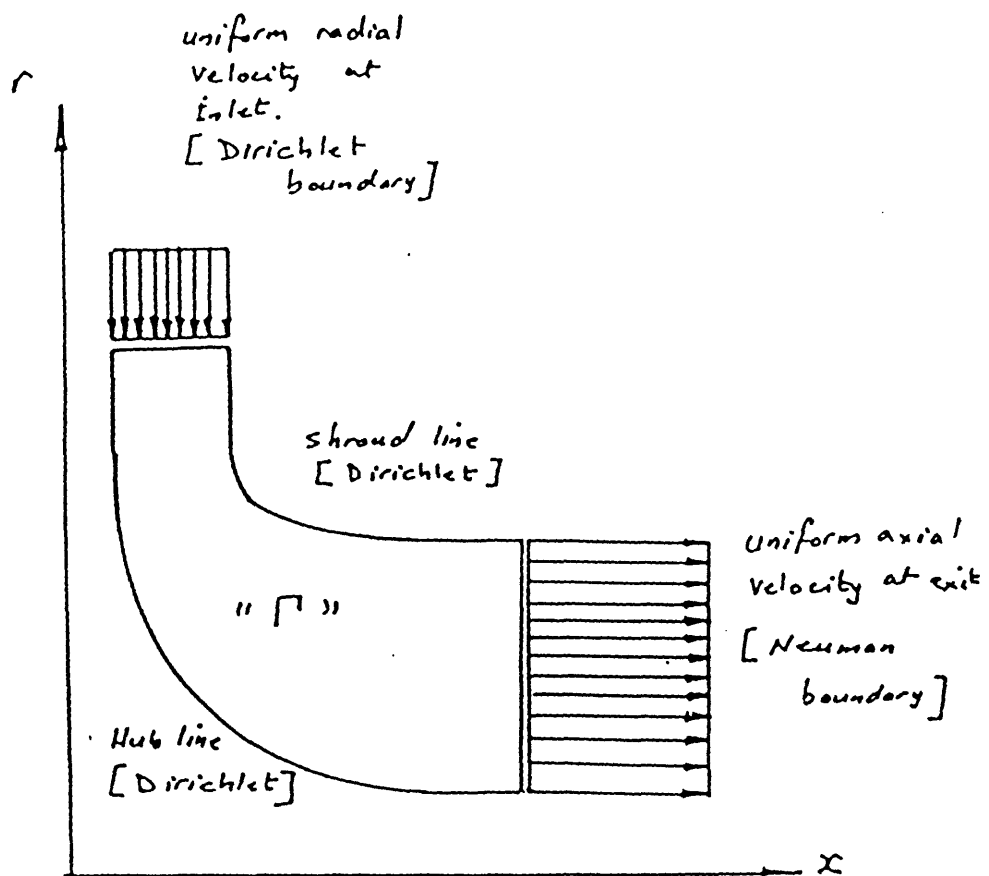 uniform radial
velocity at
inlet.
[ Dirichlet
boundary ]
r
shroud line
[ Dirichlet ]
uniform axial
velocity at exit
[ Neuman
boundary ]
" Γ "
Hub line
[ Dirichlet ]
x